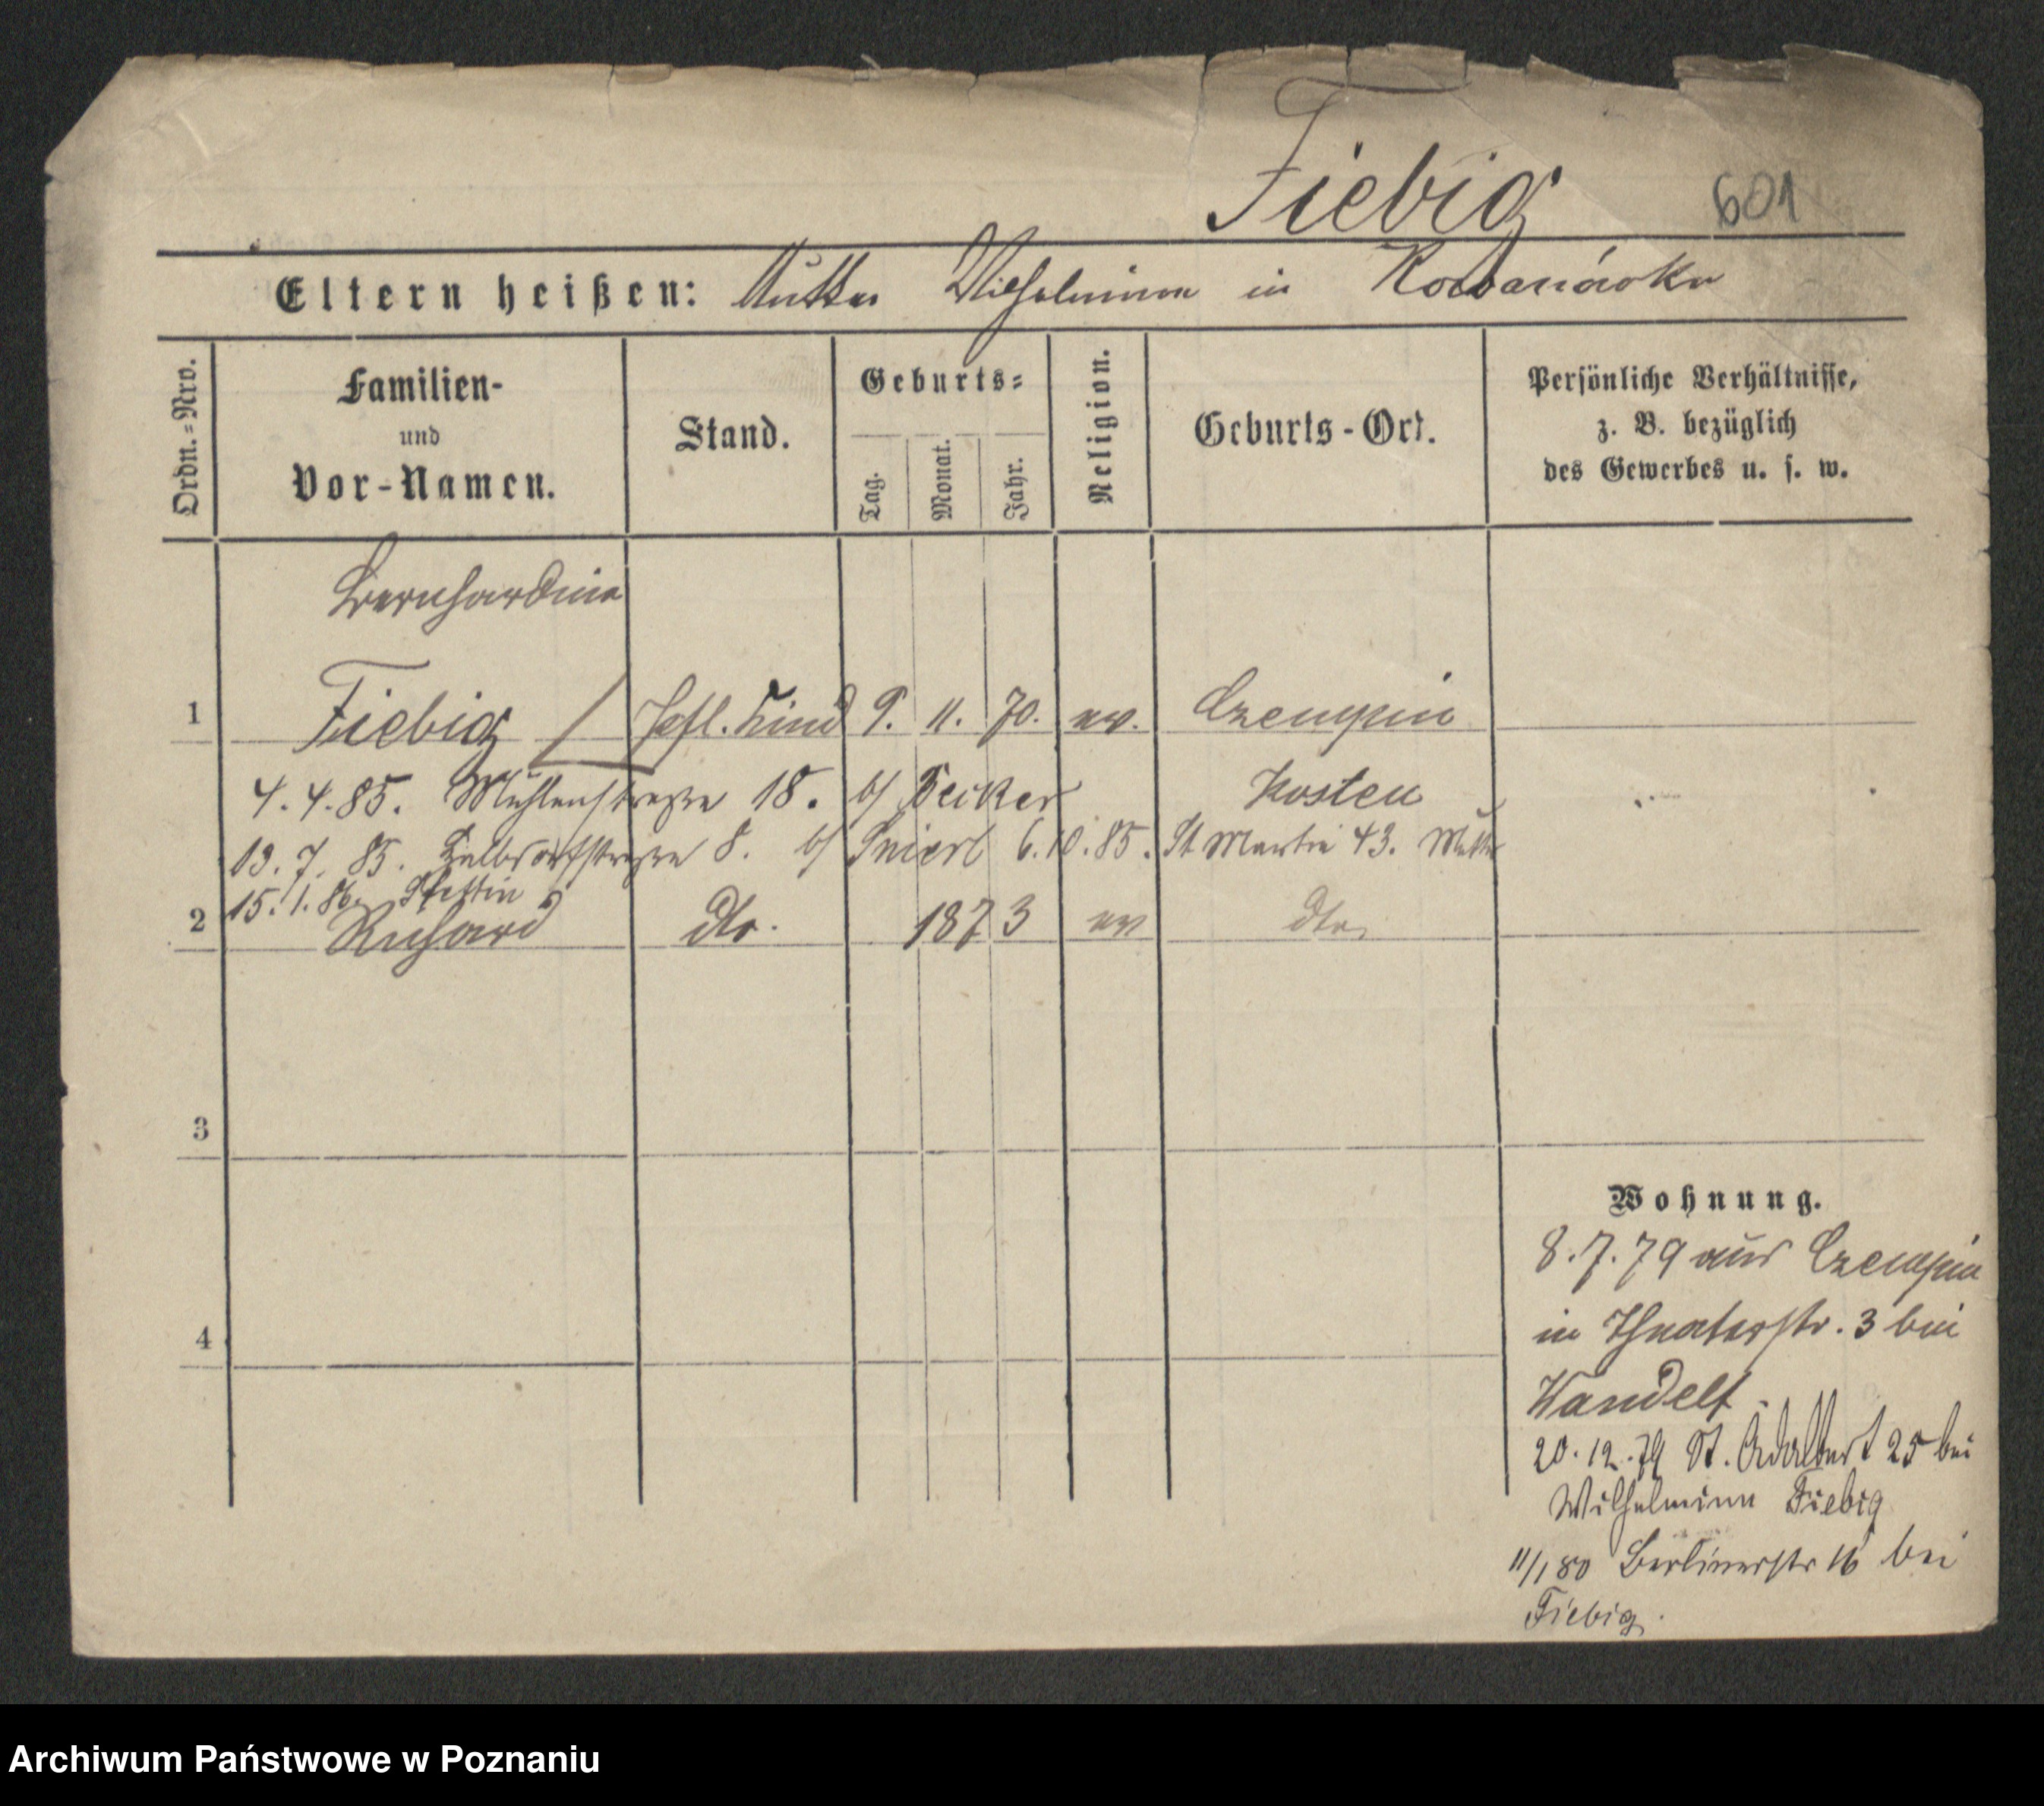 Fiebig
601
Eltern heißen: Mutter Wilhelmine in
Ordn.-Nro.
Familien-
und
Vor-Namen.
Stand.
Geburts-
Tag.
Monat.
Jahr.
Religion.
Geburts-Ort.
Persönliche Verhältnisse,
z. B. bezüglich
des Gewerbes u. s. w.
Bernhardine
1 Fiebig Kind 9. 11. 70. ev. Czempin
4.4.85. Mühlenstrasse 18. b/ Becker Kosten
13.7.85. 8. b/ 6.10.85. St Martin 43. Mutter
15.1.86. Stettin
2 Richard dto. 1873 ev dto.
3
4
Wohnung.
8.7.79 aus Czempin
in Theaterstr. 3 bei
Wandelt.
20.12.79 St. Adalbert 25 bei
Wilhelmine Fiebig
11/1 80 Berlinerstr 16 bei
Fiebig.
Archiwum Państwowe w Poznaniu